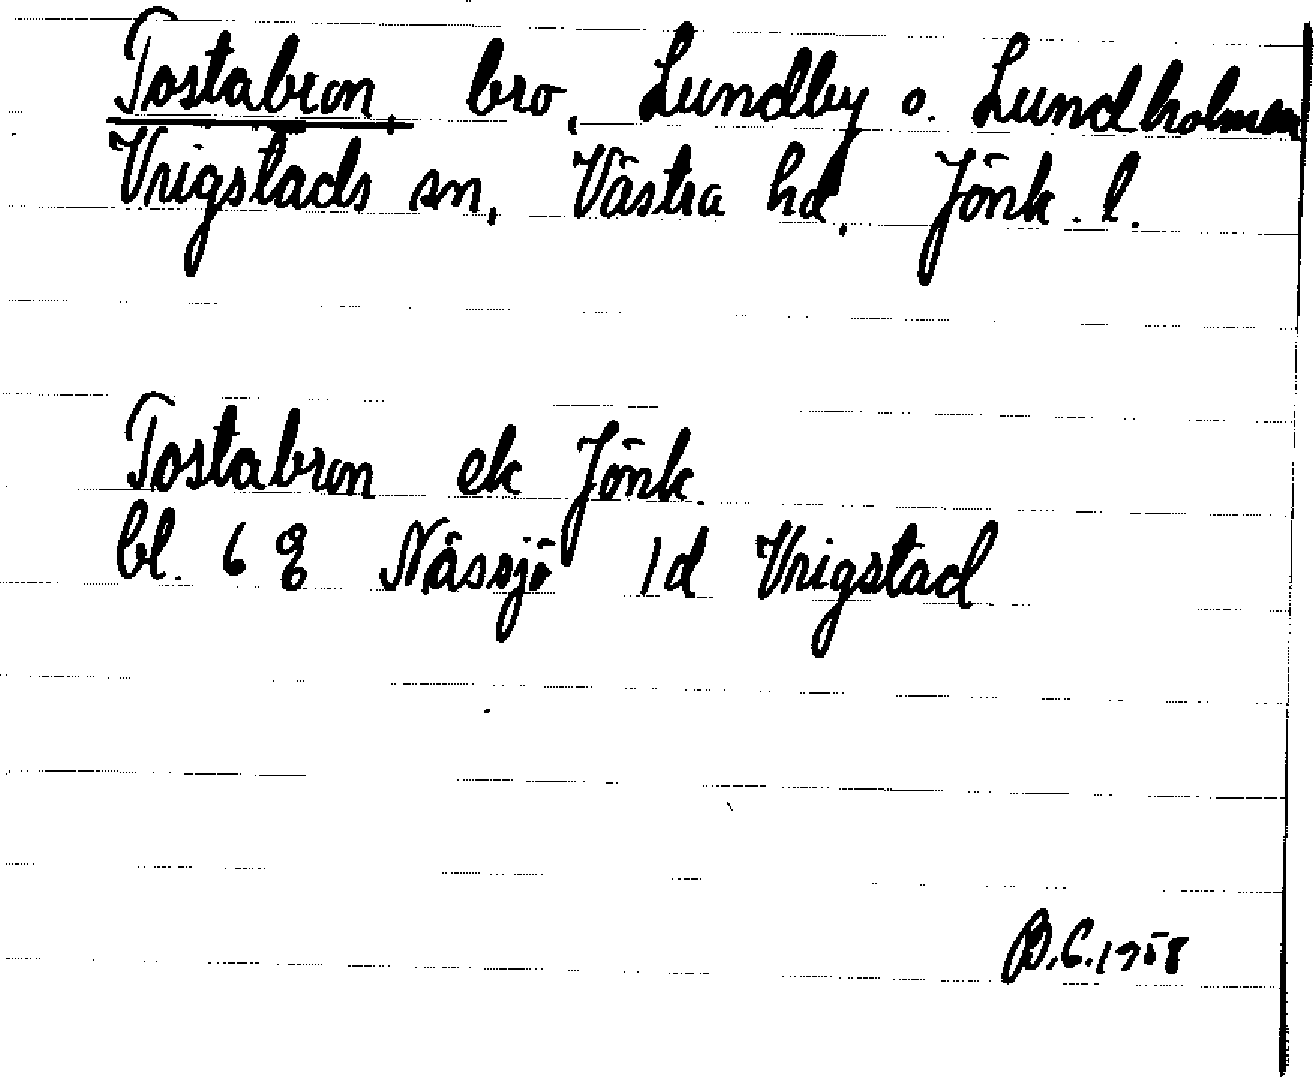 Tostabron, bro, Lundby o. Lundholmen
Vrigstads sn, Västra hd, Jönk. l.
Tostabron ek Jönk.
bl. 6 E Nässjö 1d Vrigstad
B.C. 1958